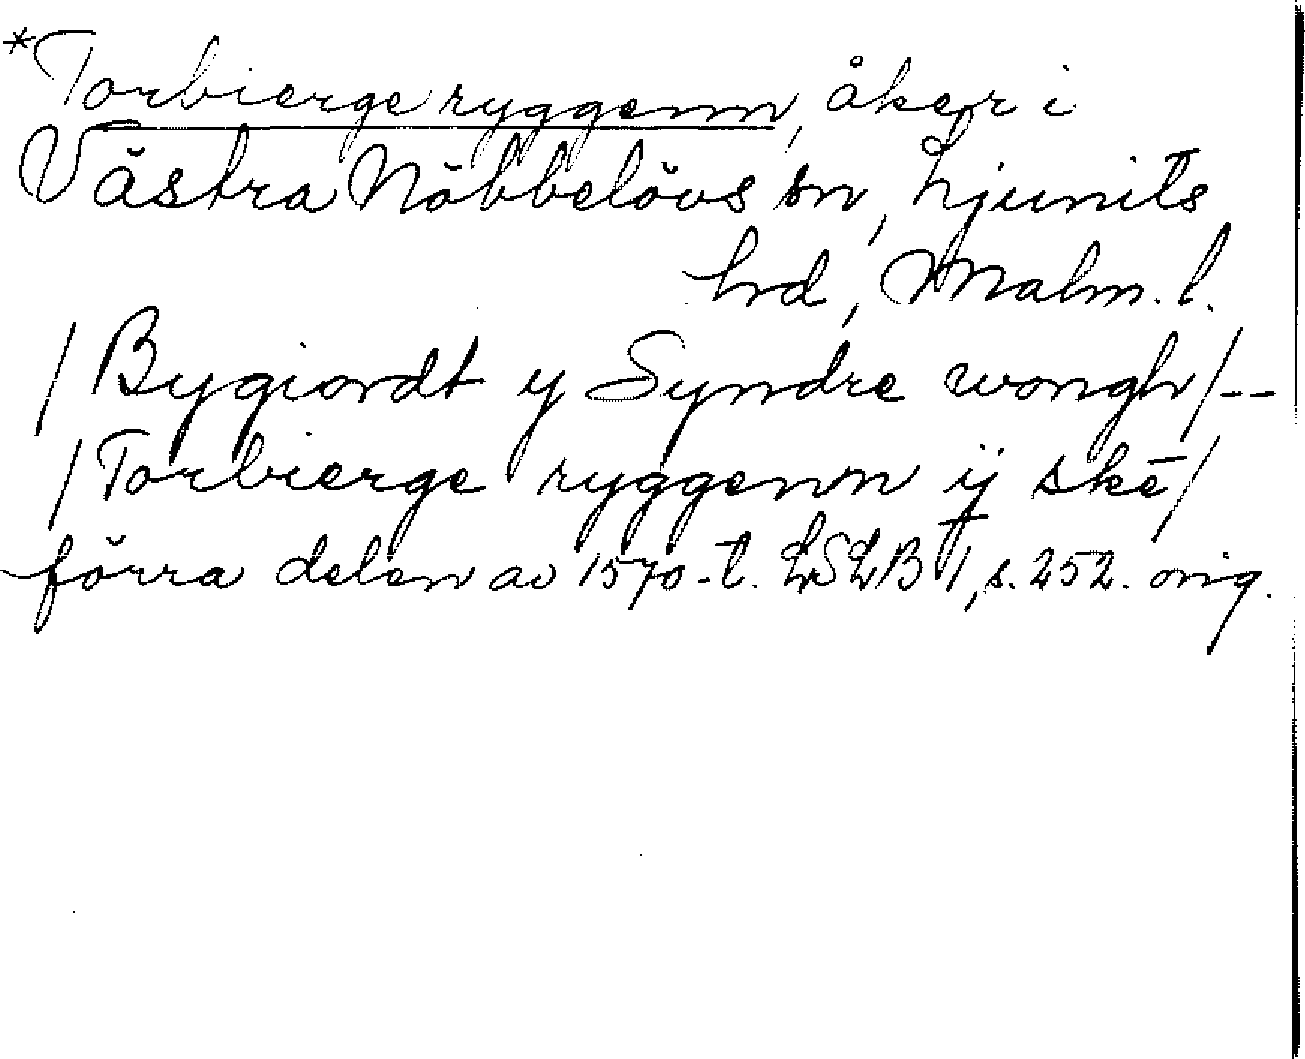 *Torbierge ryggenn, åker i
Västra Nöbbelövs sn, Ljunits
hrd, Malm. l.
/Bygiordt y Syndre wongh/--
/Torbierge ryggenn ij skē/
förra delen av 1570-t. LSLB I, s. 252. orig.